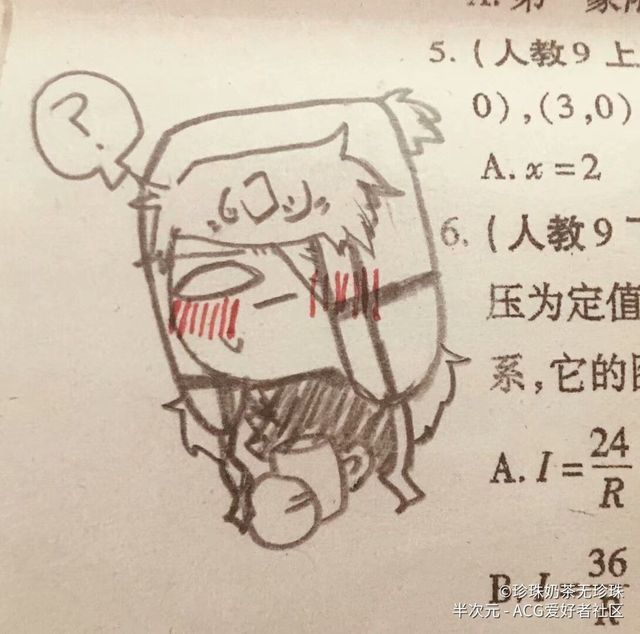 ?
5. (人教9上
0),(3,0)
A. x=2
6. (人教9
压为定值
系,它的
A. I=24/R
B. I=36/R
©珍珠奶茶无珍珠
半次元 - ACG爱好者社区